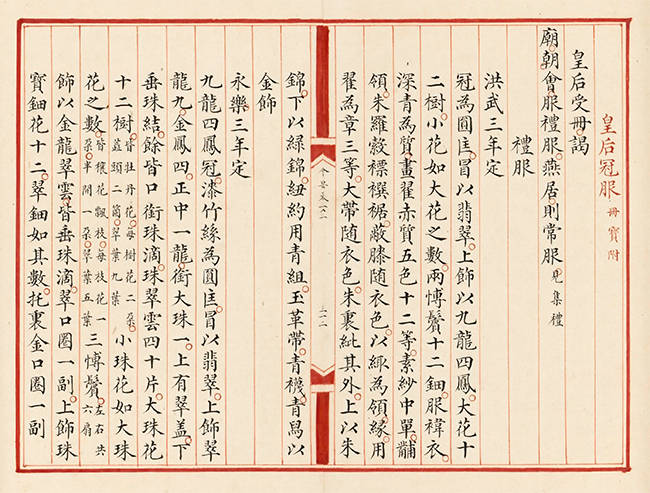 皇后冠服 冊寶附
皇后受冊謁
廟朝會服禮服燕居則常服見集禮
禮服
洪武三年定
冠為圓匡冒以翡翠上飾以九龍四鳳大花十
二樹小花如大花之數兩博鬢十二鈿服褘衣
深青為質畫翟赤質五色十二等素紗中單黼
領朱羅縠褾襈裾蔽膝随衣色以緅為領緣用
翟為章三等大帶随衣色朱裏紕其外上以朱
錦下以綠錦紐約用青組玉革帶青襪青舄以
金飾
永樂三年定
九龍四鳳冠漆竹絲為圓匡冒以翡翠上飾翠
龍九金鳳四正中一龍銜大珠一上有翠盖下
垂珠結餘皆口銜珠滴珠翠雲四十片大珠花
十二樹皆牡丹花每樹花二朵蕋頭二箇翠葉九葉小珠花如大珠
花之數皆穰花飄枝每枝花一朵半開一朵翠葉五葉三博鬢左右共六扇
飾以金龍翠雲皆垂珠滴翠口圈一副上飾珠
寶鈿花十二翠鈿如其數托裏金口圈一副